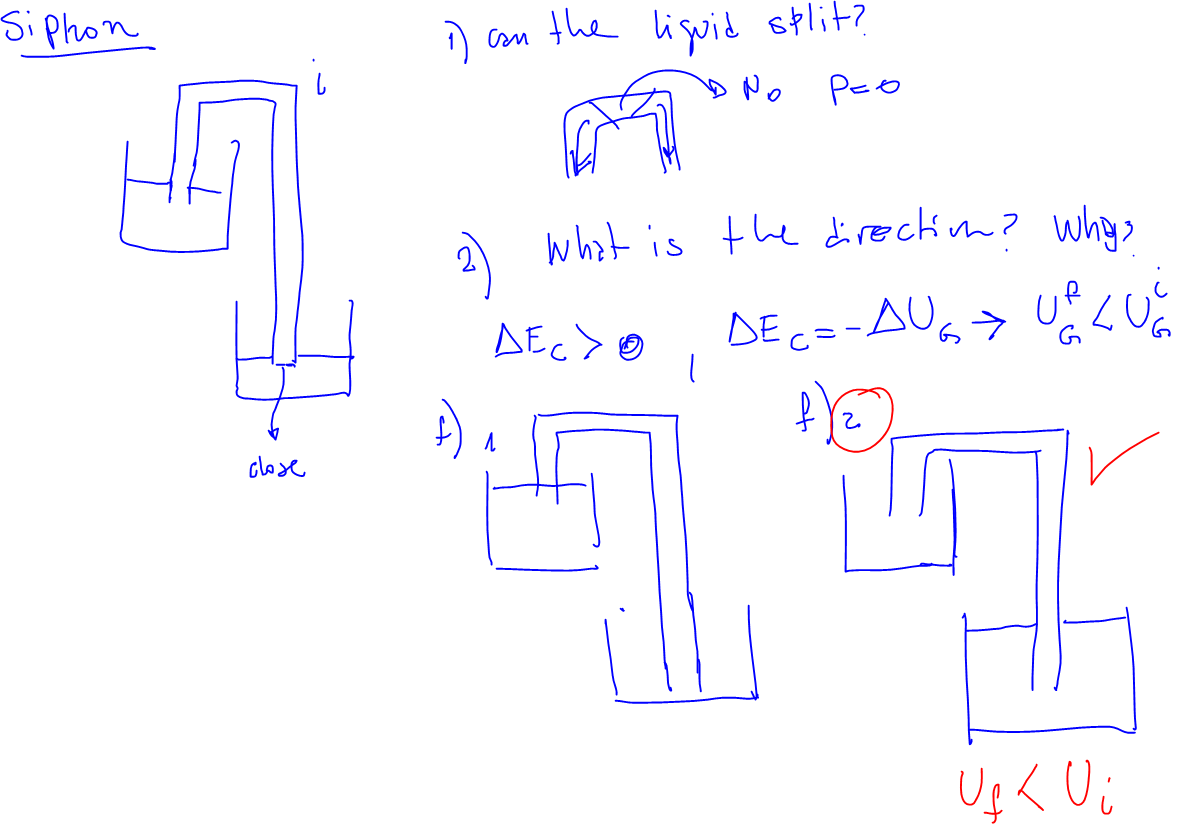 Siphon
i
1) can the liquid split?
No P=0
2) What is the direction? Why?
ΔE_C > 0, ΔE_C = -ΔU_G → U_G^f < U_G^i
close
f) 1
f) 2
U_f < U_i